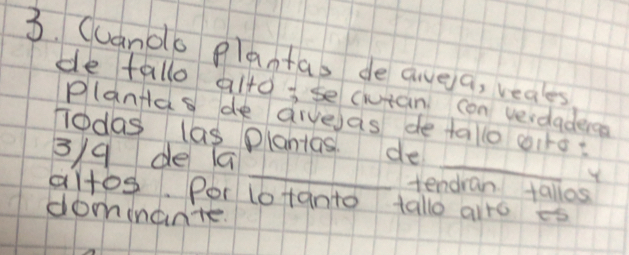 3. Cuando plantas de arveja, reales
de tallo alto; se cruzan con verdaderas
plantas de arvejas de tallo alto:
Todas las plantas de ______ y
3/4 de la ______ tendran tallos
altos. Por lo tanto tallo alto es
dominante.